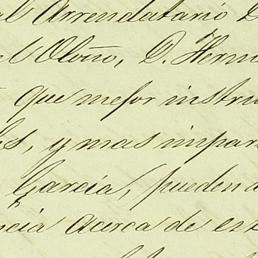 el Arrendatario D
el Otoño, D. Herm
que mejor instru
les, y mas impar
Garcia, pueden d
ncia acerca de es